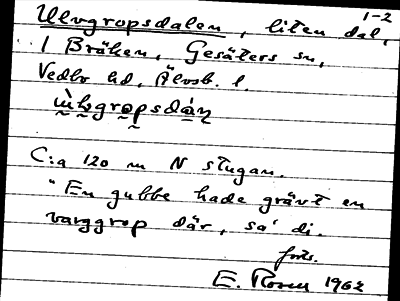 1-2
Ulvgropsdalen, liten dal,
i Bräken, Gesäters sn,
Vedbo hd, Älvsb. l.
C:a 120 m N stugan.
"En gubbe hade grävt en
varggrop där, sa' di.
forts.
E. Rosen 1962